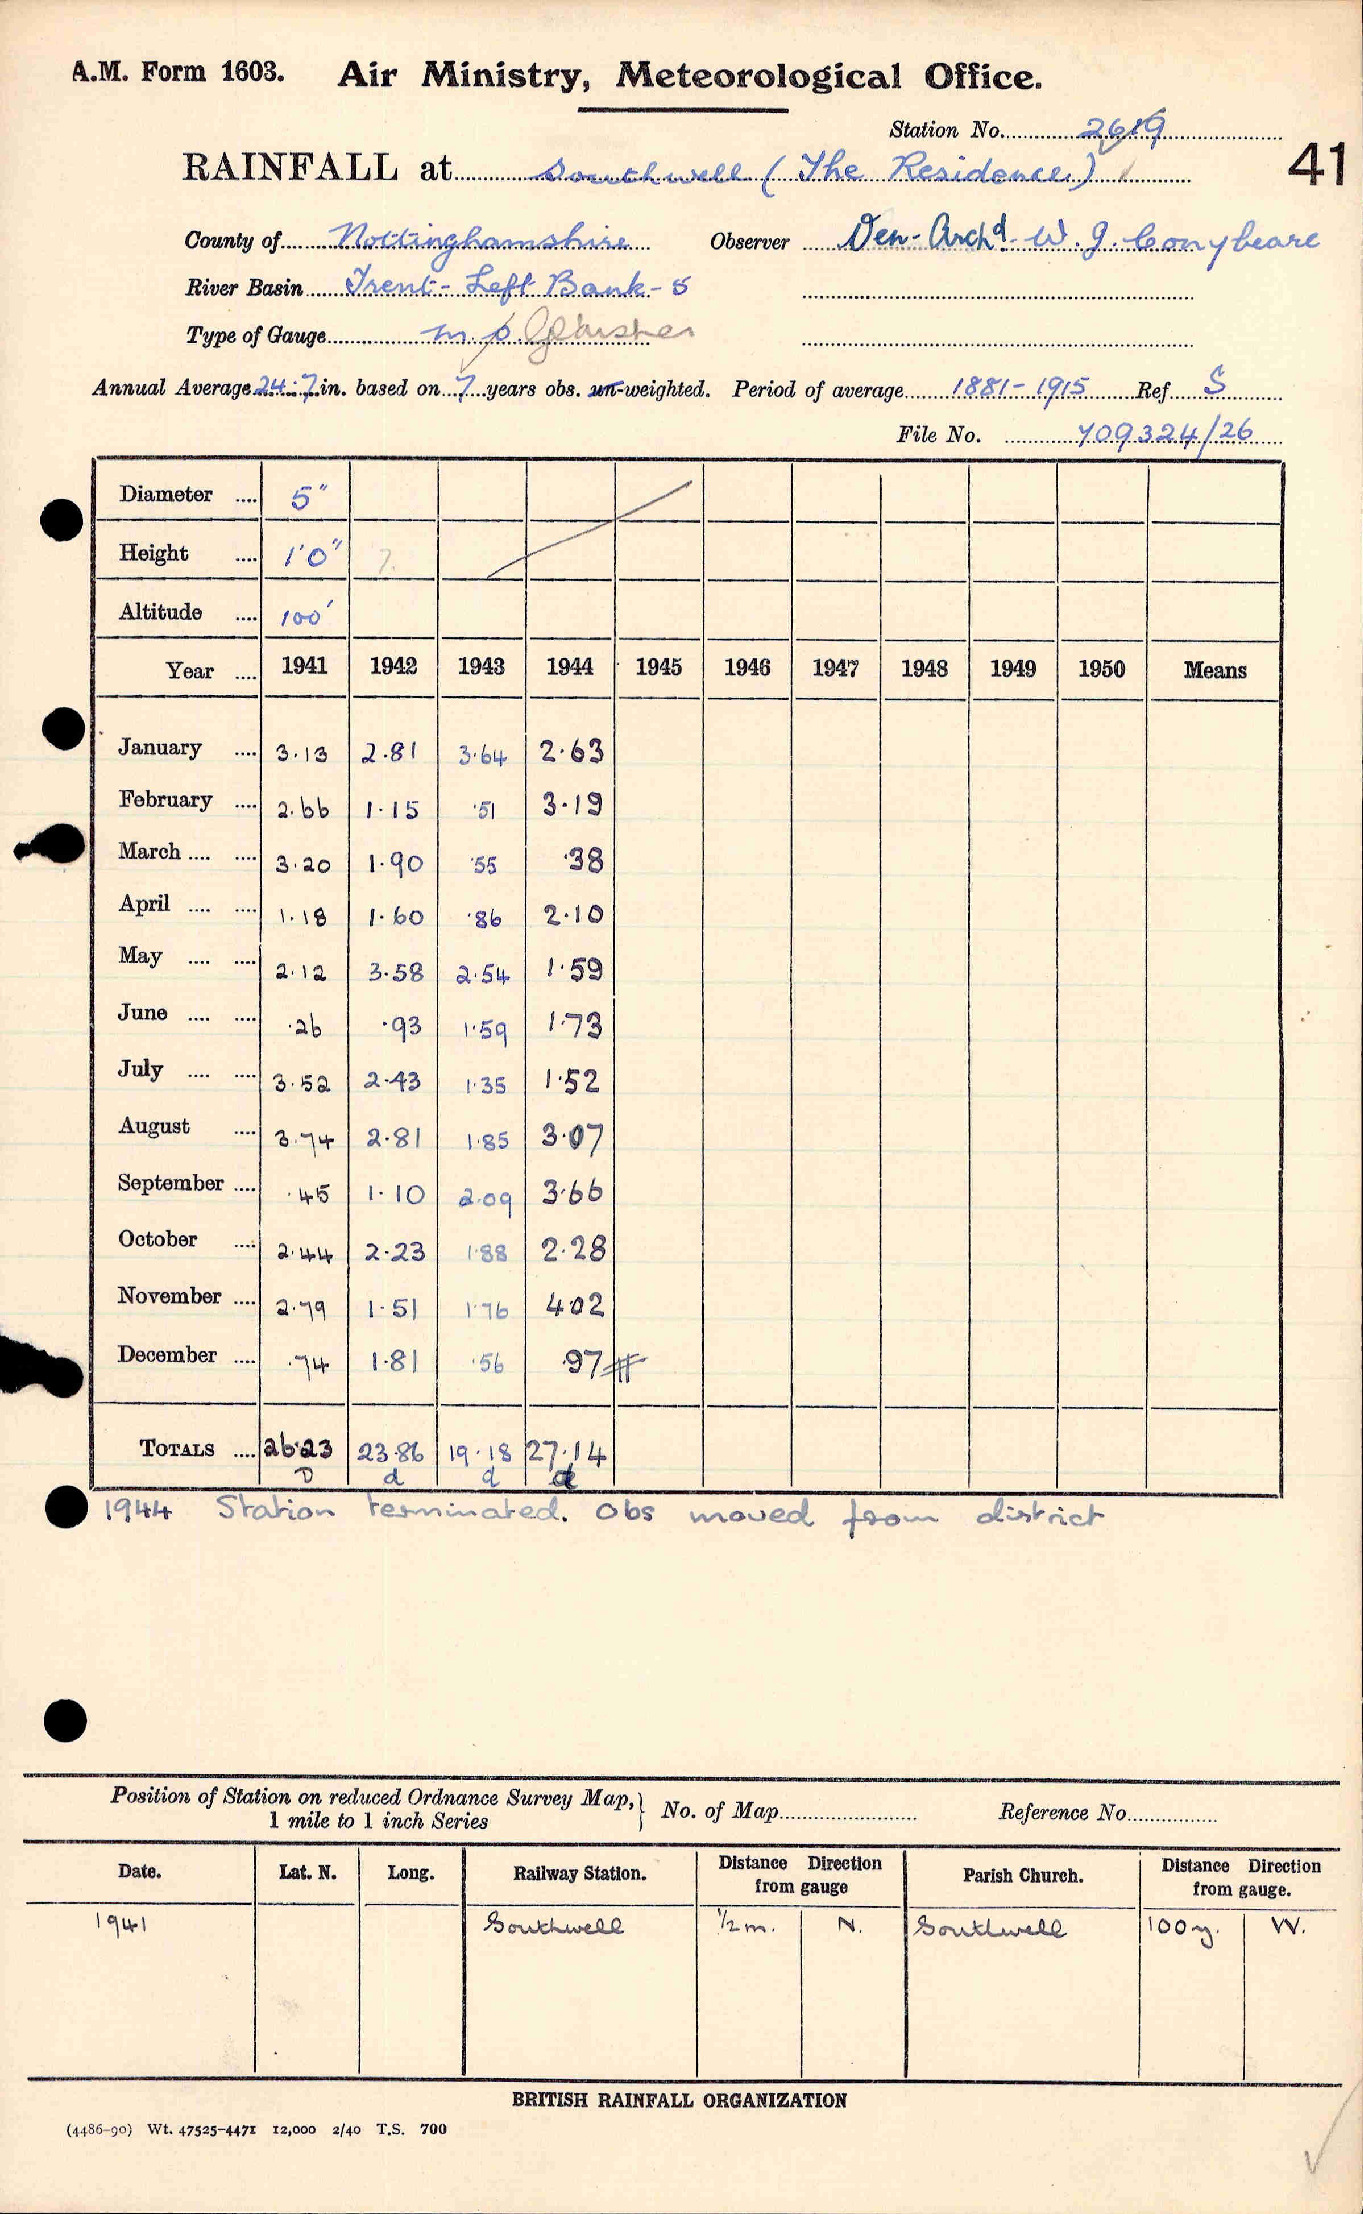 A.M. Form 1603. Air Ministry, Meteorological Office.
Station No. 2619
41
RAINFALL at Southwell (The Residence)
County of Nottinghamshire Observer Ven. Archd. W. J. Conybeare
River Basin Trent - Left Bank - 5
Type of Gauge m.o. Glaisher
Annual Average 24.7 in. based on 7 years obs. un-weighted. Period of average 1881-1915 Ref S
File No. 709324/26
Diameter .... 5"
Height .... 1'0" ?
Altitude .... 100'
Year .... 1941 1942 1943 1944 1945 1946 1947 1948 1949 1950 Means
January .... 3.13 2.81 3.64 2.63
February .... 2.66 1.15 .51 3.19
March .... .... 3.20 1.90 .55 .38
April .... .... 1.18 1.60 .86 2.10
May .... .... 2.12 3.58 2.54 1.59
June .... .... .26 .93 1.59 1.73
July .... .... 3.52 2.43 1.35 1.52
August .... 3.74 2.81 1.85 3.07
September .... .45 1.10 2.09 3.66
October .... 2.44 2.23 1.88 2.28
November .... 2.79 1.51 1.76 4.02
December .... .74 1.81 .56 .97 #
TOTALS .... 26.23 23.86 19.18 27.14
D d d d
1944 Station terminated. Obs moved from district
Position of Station on reduced Ordnance Survey Map, } No. of Map Reference No.
1 mile to 1 inch Series
Date. Lat. N. Long. Railway Station. Distance Direction from gauge Parish Church. Distance Direction from gauge.
1941 Southwell 1/2 m. N. Southwell 100 y. W.
BRITISH RAINFALL ORGANIZATION
(4486-90) Wt. 47525-4471 12,000 2/40 T.S. 700